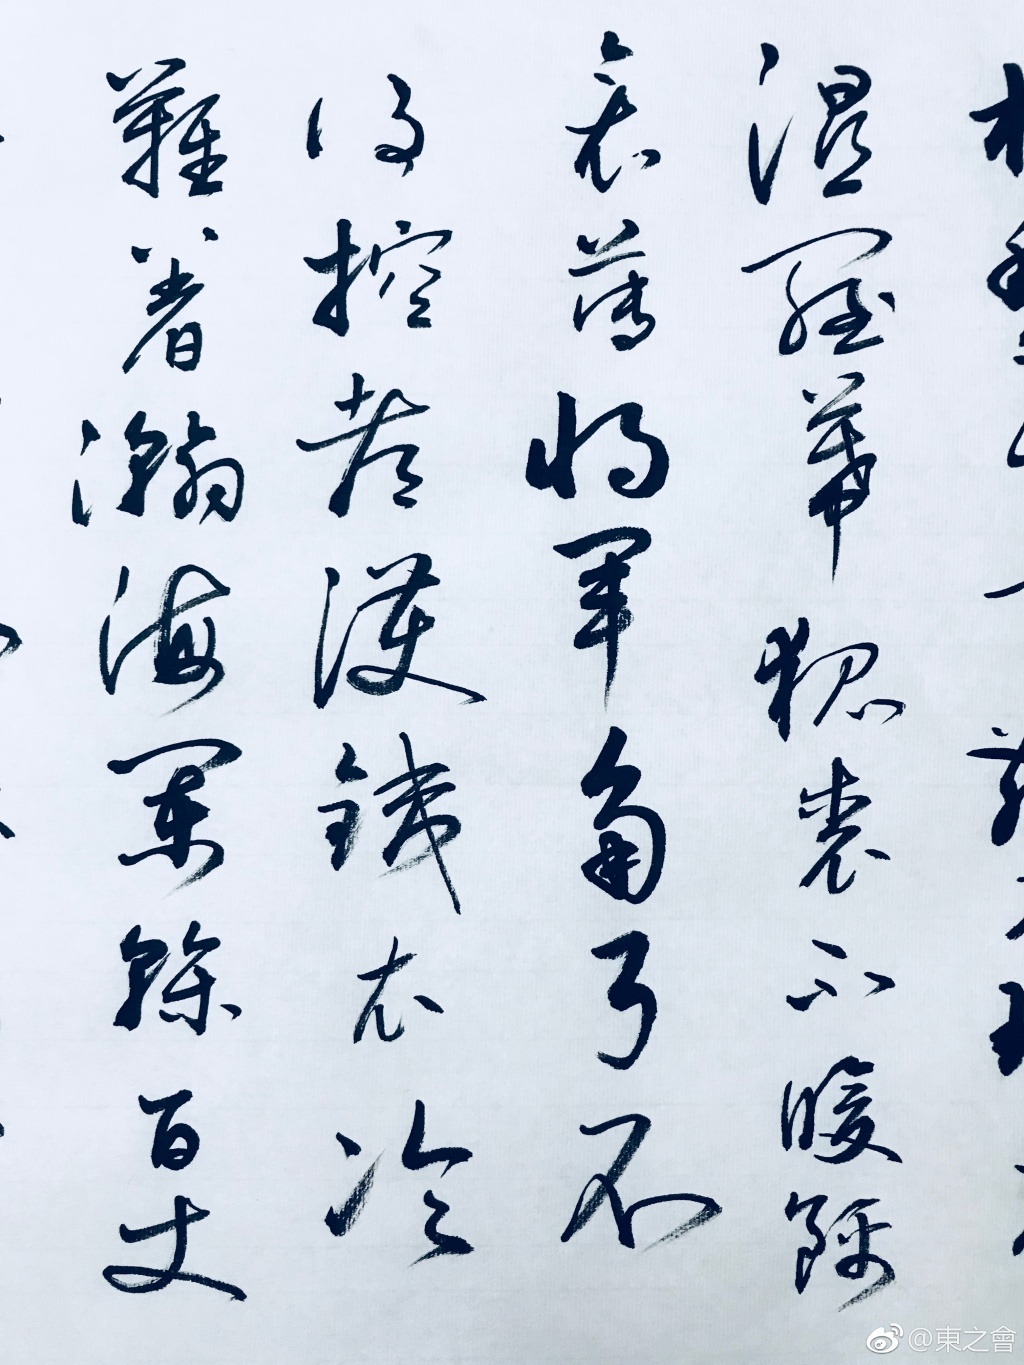 濕羅幕狐裘不暖錦
衾薄將軍角弓不
得控都護鐵衣冷
難著瀚海闌榦百丈
@東之會